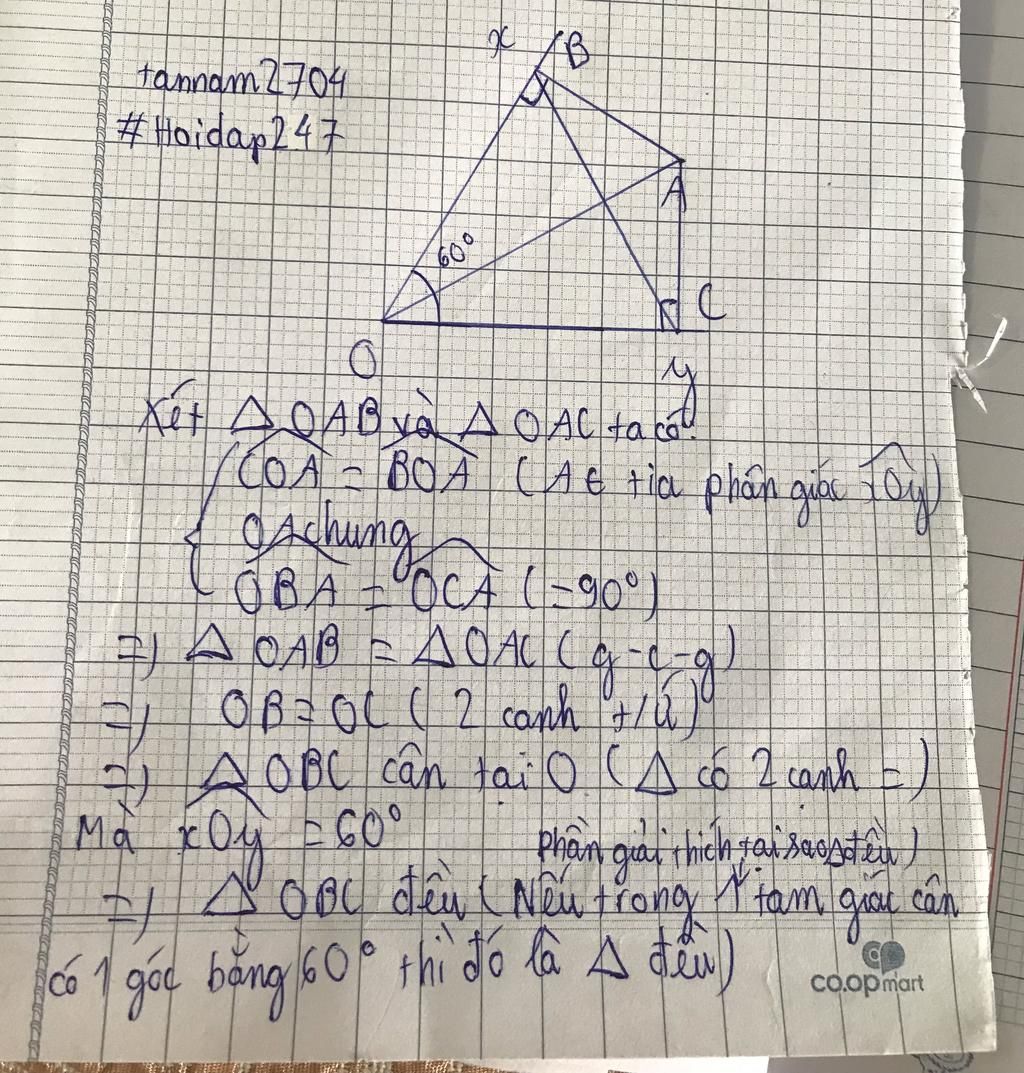 tannam2704
#Hoidap247
x B
60°
A
C
O
y
Xét Δ OAB và Δ OAC ta có:
COA = BOA (A ∈ tia phân giác xOy)
OA chung
OBA = OCA (=90°)
=) Δ OAB = Δ OAC (g-c-g)
=) OB = OC (2 cạnh t/ứ)
=) Δ OBC cân tại O (Δ có 2 cạnh =)
Mà xOy = 60°
phần giải thích tại sao Δ đều)
=) Δ OBC đều (Nếu trong 1 tam giác cân
có 1 góc bằng 60° thì đó là Δ đều)
co.opmart